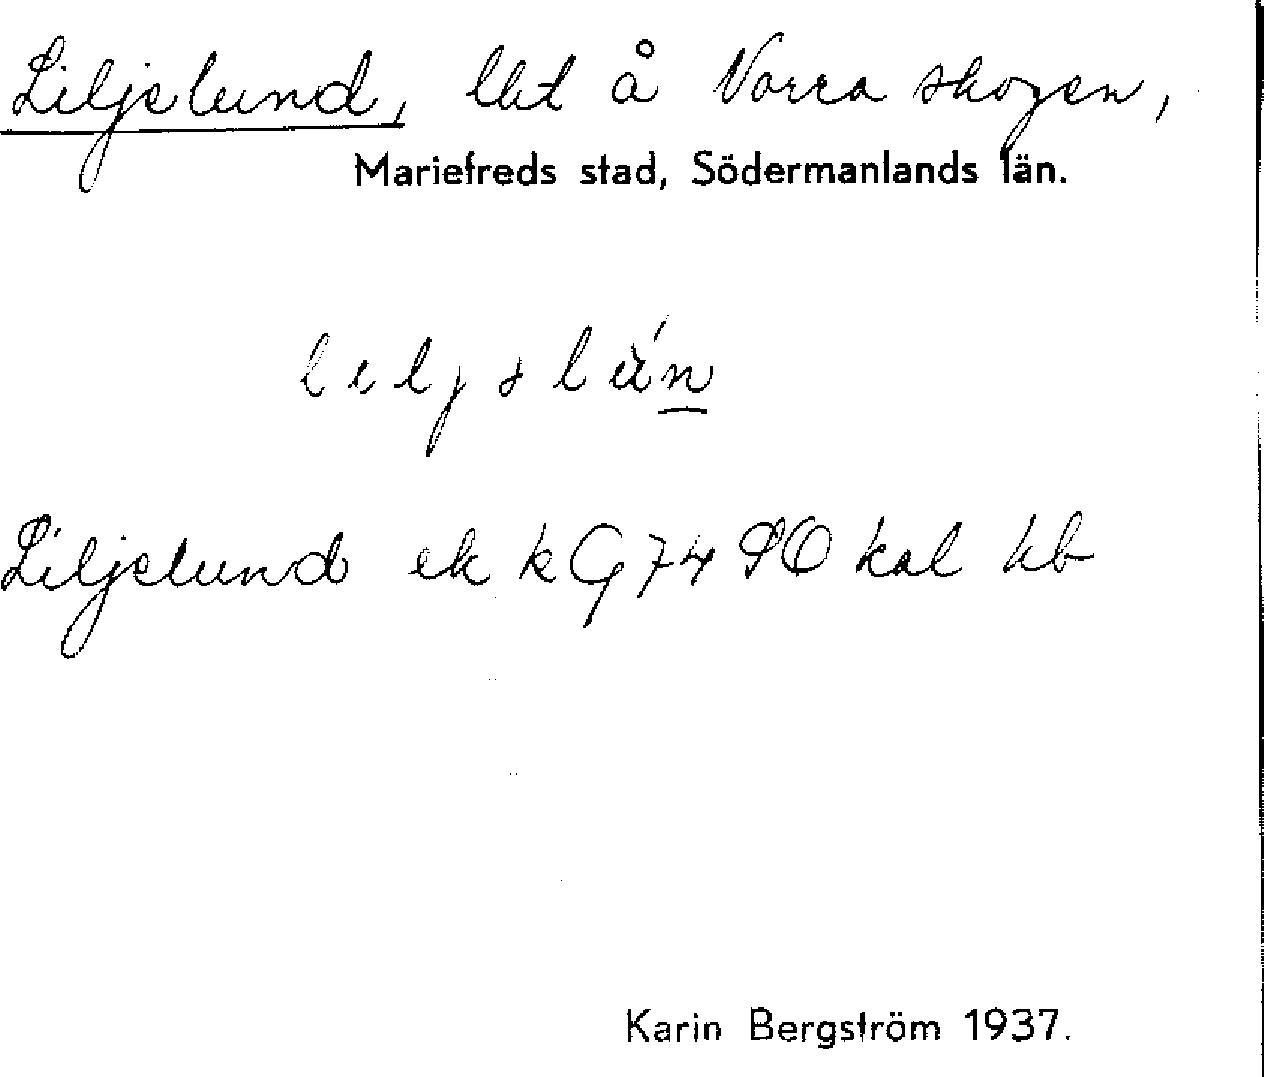 Liljelund, lht å Norra skogen,
Mariefreds stad, Södermanlands län.
Liljelund ek kG7490 kal hb
Karin Bergström 1937.